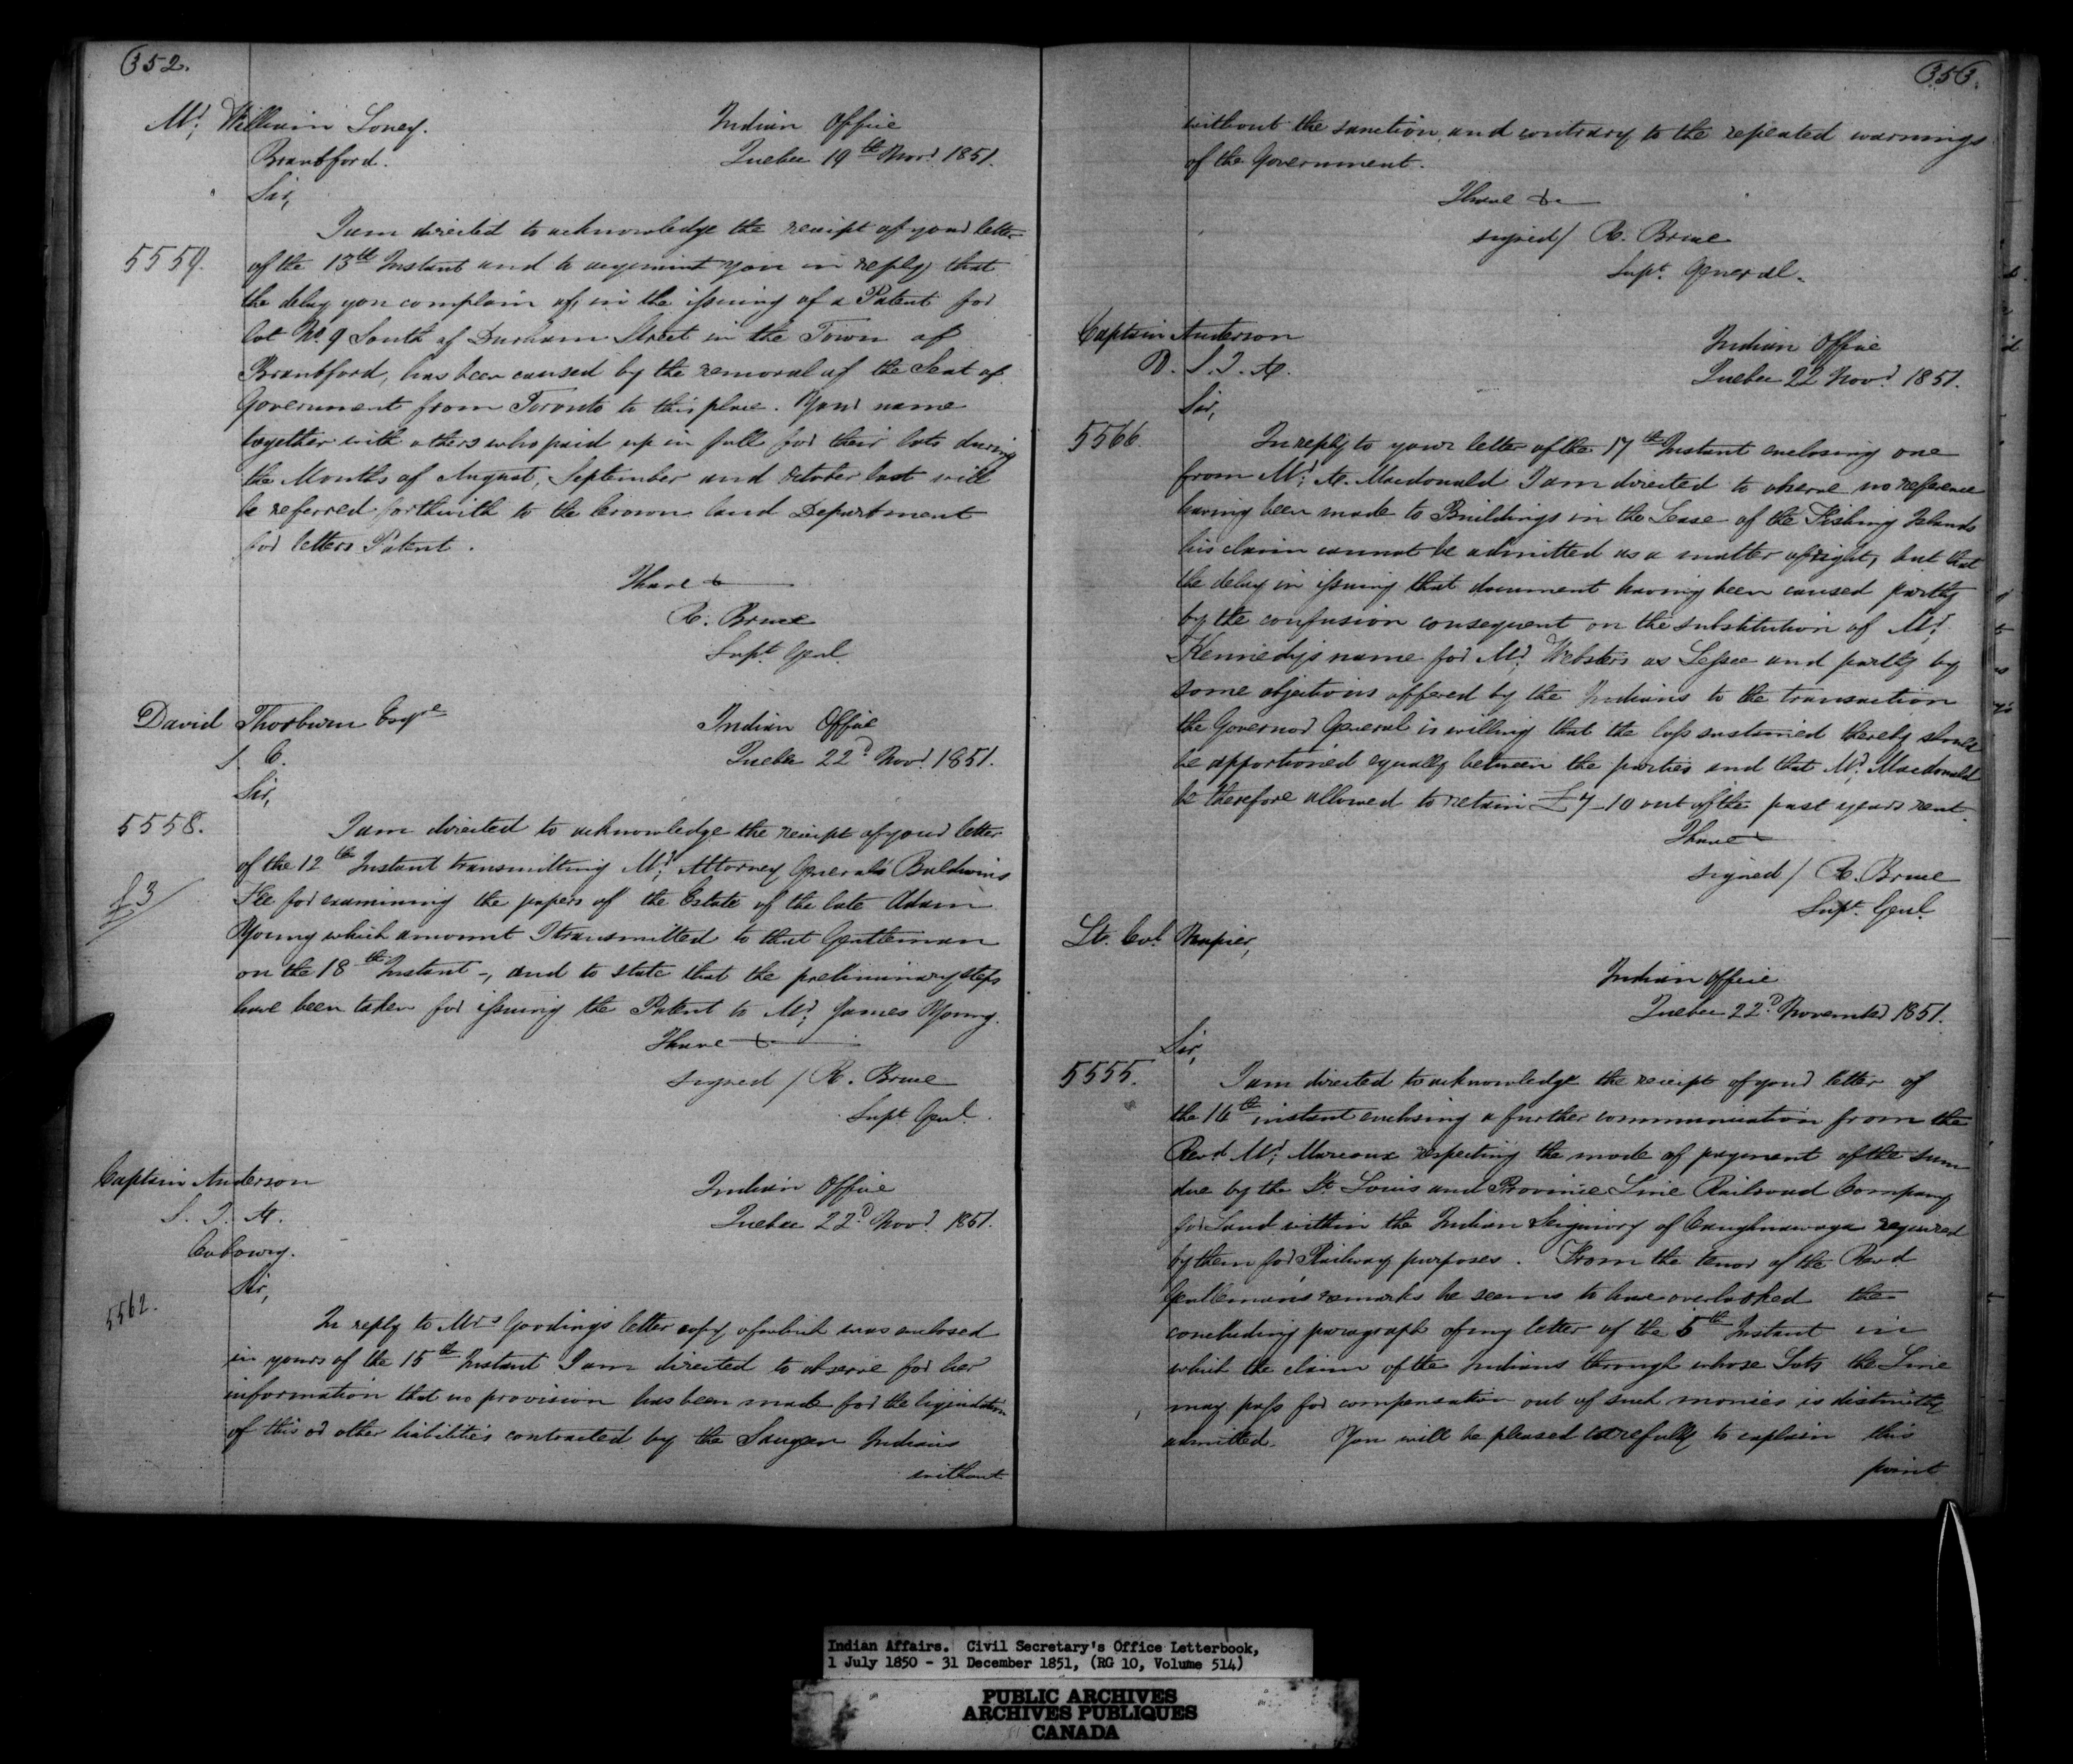 352.
Mr. William Loney.
Brantford.
Indian Office
Quebec 19th Novr. 1851.
Sir,
5559.
I am directed to acknowledge the receipt of your letter
of the 13th Instant and to acquaint you in reply that
the delay you complain of, in the issuing of a Patent for
Lot No. 9 South of Durham Street in the Town of
Brantford, has been caused by the removal of the Seat of
Government from Toronto to this place. Your name
together with others who paid up in full for their lots during
the Months of August, September and October last will
be referred forthwith to the Crown Land Department
for letters Patent.
I have &c
R. Bruce
Supt. Genl.
David Thorburn Esqre
S. C.
Indian Office
Quebec 22d Novr. 1851.
Sir,
5558.
I am directed to acknowledge the receipt of your letter
of the 12th Instant transmitting Mr. Attorney General's Baldwins
£3
Fee for examining the papers of the Estate of the late Adam
Young which amount I transmitted to that Gentleman
on the 18th Instant -, and to state that the preliminary steps
have been taken for issuing the Patent to Mr. James Young.
I have &c
signed / R. Bruce
Supt. Genl.
Captain Anderson
S. I. A.
Cobourg.
Indian Office
Quebec 22d Novr. 1851.
Sir,
5562.
In reply to Mrs Gooding's letter copy of which was enclosed
in yours of the 15th Instant I am directed to observe for her
information that no provision has been made for the liquidation
of this or other liabilities contracted by the Saugeen Indians
without
353.
without the sanction, and contrary to the repeated warnings
of the Government.
I have &c
signed / R. Bruce
Supt. General.
Captain Anderson
D. S. I. A.
Indian Office
Quebec 22 Novr. 1851.
Sir,
5566.
In reply to your letter of the 17th Instant enclosing one
from Mr. A. Macdonald I am directed to observe no reference
having been made to Buildings in the Lease of the Fishing Islands
his claim cannot be admitted as a matter of right, but that
the delay in issuing that document having been caused partly
by the confusion consequent on the substitution of Mr.
Kennedys name for Mr. Websters as Lessee and partly by
some objections offered by the Indians to the transaction
the Governor General is willing that the loss sustained thereby should
be apportioned equally between the parties and that Mr. Macdonald
be therefore allowed to retain £7-10 out of the past years rent.
I have
signed / R. Bruce
Supt. Genl.
Lt. Col. Napier,
Indian Office
Quebec 22d November 1851.
Sir,
5555.
I am directed to acknowledge the receipt of your letter of
the 14th instant enclosing a further communication from the
Revd. Mr. Marcoux respecting the mode of payment of the sum
due by the St. Louis and Province Line Railroad Company
for Land within the Indian Seigniory of Caughnawaga required
by them for Railway purposes. From the tenor of the Revd
Gentleman's remarks he seems to have overlooked the
concluding paragraph of my letter of the 5th Instant in
which the claim of the Indians through whose Lots the Line
may pass for compensation out of such monies is distinctly
admitted. You will be pleased carefully to explain this
point
Indian Affairs. Civil Secretary's Office Letterbook,
1 July 1850 - 31 December 1851, (RG 10, Volume 514)
PUBLIC ARCHIVES
ARCHIVES PUBLIQUES
CANADA